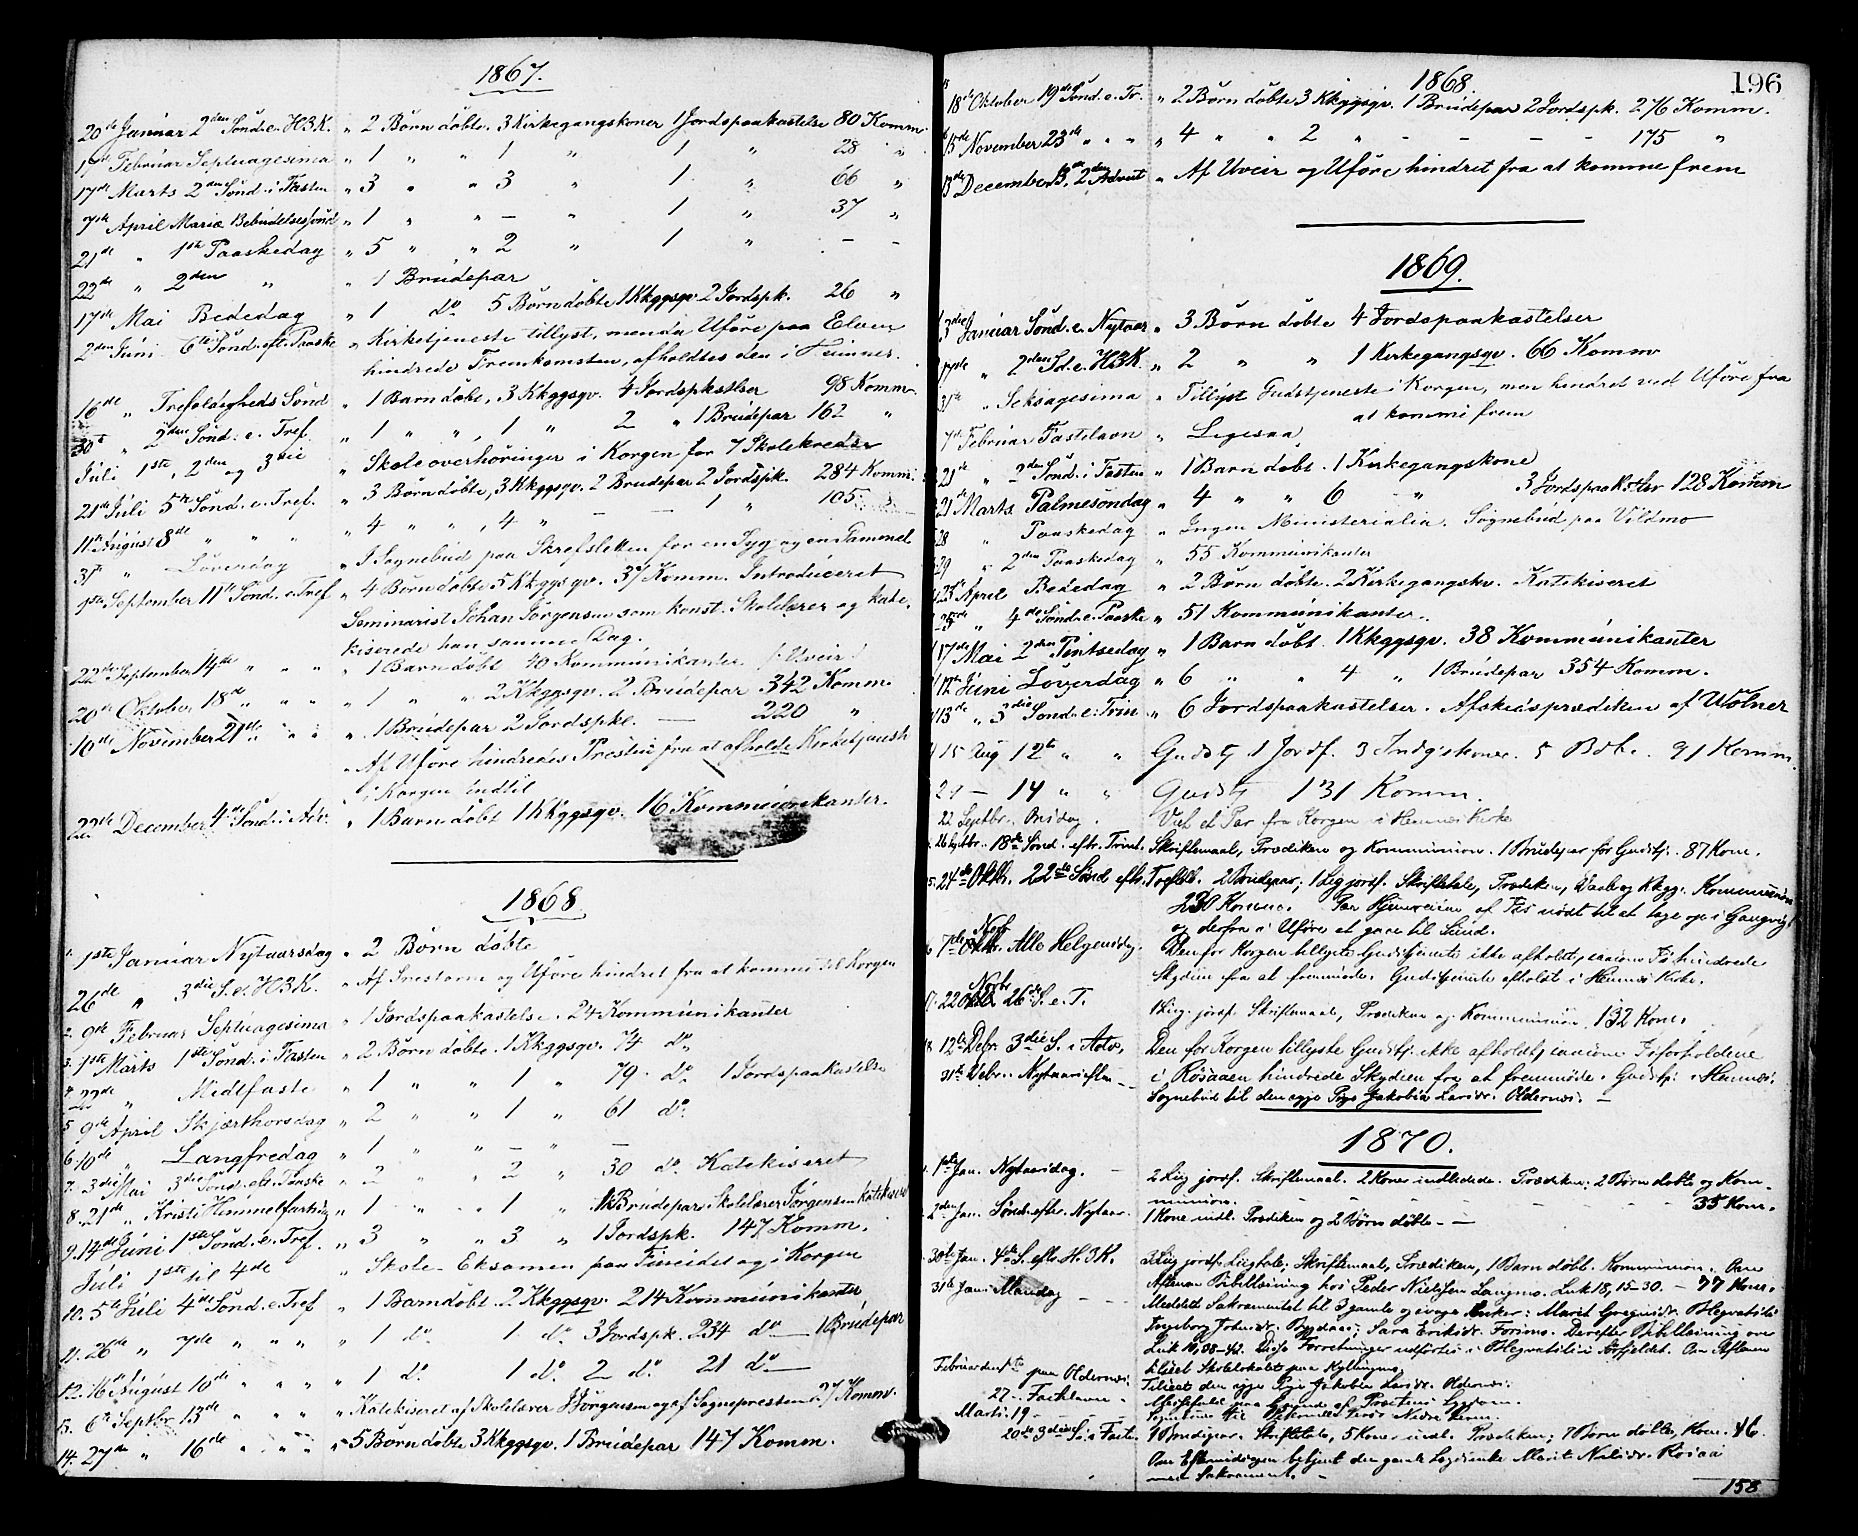 1867.
20de Januar 2den Sönd. e. H3K. " 2 Börn döbte. 3 Kirkegangskoner 1 Jordspaakastelse 80 Komm.
17de Februar Septuagesima " 1 " " 1 " 1 " 28 "
17de Marts 2den Sönd. i Fasten " 3 " " 3 " 1 " 66 "
7de April Mariæ Bebudelsessönd. " 1 " " – " 1 " 37 "
21de " 1ste Paaskedag " 5 " " 2 " 1 " – –
22de " 2den " " 1 Brudepar
17de Mai Bededag " 1 do 5 Börn döbte 1 Kkggsgv. 2 Jordspk. 26 "
2den Juni 6te Sönd. eft. Paaske " Kirketjeneste tillyst, menda Uföre paa Elven
hindrede Fremkomsten, afholdtes den i
16de " Trefoldigheds Sönd. " 1 Barn döbt, 3 Kkggsgv. 4 Jordspkastlser 98 Komm.
30te " 2den Sönd. e. Tref. " 1 " " , 1 " 2 " 1 Brudepar 162 "
Juli 1ste, 2den og 3die " Skoleoverhöringer i Korgen for 7 Skolekredse
21de Juli 5te Sönd. e. Tref. " 3 Börn döbte, 3 Kkggsgv. 2 Brudepar 2 Jordspk. 284 Komm.
11te August 8de " " " " 4 " " , 4 " – – 1 " 105
31te " Löverdag " I Sognebud paa Skrefsletten for en Syg og en Gammel
1ste September 11te Sönd. e. Tref " 4 Börn döbte 5 Kkggsgv. 37 Komm. Introduceret
Seminarist Johan Jörgensen som konst. Skolelærer og kate-
kiserede han samme Dag.
22de September 14de " " " " 1 Barn döbt 40 Kommunikanter (: Uveir :)
20de Oktober 18de " " " " 1 " " 2 Kkggsgv. 2 Brudepar 342 Komm.
10de November 21de " " " " 1 Brudepar 2 Jordspkl. — 220 "
" Af Uföre hindredes Presten fra at afholde Kirketjeneste
i Korgen indtil
22de December 4de Sönd. i Adv. " 1 Barn döbt 1 Kkggsgv. 16 Kommunikanter.
1868
1. 1ste Januar Nytaarsdag " 2 Börn döbte
26de " 3die S. e. H3K. " Af Snestorm og Uföre hindret fra at komme til Korgen
2. 9de Februar Septuagesima " 1 Jordspaakastelse. 24 Kommunikanter
3. 1ste Marts 1ste Sönd. i Fasten " 2 Börn döbte. 1 Kkggsgv. 74 do
4. 22de " Midtfaste " 1 " " 1 " 79 do 1 Jordspaakastelse
5. 9de April Skjærthorsdag " 2 " " 1 " 61 do
6. 10de " Langfredag " 1 " " – " –
7. 3die Mai 3die Sönd. eft. Paaske " 2 " " 2 " 30 do Katekiseret
8. 21de " Kristi Himmelfartsdg " 1 " " 1 " 1 Brudepar. Skolelærer Jörgensen katekiseret
9. 14de Juni 1ste Sönd. e. Tref. " 3 " " 3 " 1 Jordspk. 147 Komm.
Juli 1ste til 4de " Skole-Eksamen paa Finneidet og i Korgen
10. 5te Juli 4de Sönd. e. Tref " 1 Barn döbt. 2 Kkggsgv. 214 Kommunikanter
11. 26de " 7de " " " " 1 do 1 do 3 Jordspk. 234 do — 1 Brudepar
12. 16de August 10de " " " " 1 do 1 do 2 do 21 do —
13. 6te Septbr 13de " " " " Katekiseret af Skolelærer Jörgensen og af Sognepresten 27 Komm.
14. 27de " 16de " " " " 5 Börn döbte 3 Kkggsgv. 1 Brudepar 147 Komm.
196
1868.
18de Oktober 19de Sönd. e. Tr. " 2 Börn döbte 3 Kkggsgv. 1 Brudepar 2 Jordspk. 276 Komm.
15de November 23de " " " " 4 " " 2 " – – – 175 "
13de December 2den Advent " Af Uveir og Uföre hindret fra at komme frem
1869.
3die Januar Sönd. e. Nytaar " 3 Börn döbte 4 Jordspaakastelser
17de " 2den Sd. e. H3K. " 2 " " 1 Kirkegangsgv. 66 Komm
31te " Seksagesima " Tillyst Gudstjeneste i Korgen, men hindret ved Uföre fra
at komme frem
7de Februar Fastelavn " Ligesaa
21de " 2den Sönd. i Fasten " 1 Barn döbt. 1 Kirkegangskone
21de Marts Palmesöndag " 4 " " 6 " 3 Jordspaakstlser 128 Komm
28 " Paaskedag " Ingen Ministerialia. Sognebud paa Vildmo
29 " 2den Paaskedag " 55 Kommunikanter
23de April Bededag " 2 Börn döbte. 2 Kirkegangskv. Katekiseret
25de " 4de Sönd. e. Paaske " 51 Kommunikanter.
17de Mai 2den Pintsedag " 1 Barn döbt. 1 Kkggsgv. 38 Kommunikanter
12te Juni Löverdag " 6 " " 4 " 1 Brudepar 354 Komm.
13de " 3die Sönd. e. Trin " 6 Jordspaakastelser. Afskedsprædiken af Utölner
15 Aug 12te " " Gudstj 1 Jordf. 3 Indg'skoner. 5 B dbt. 91 Komm.
29 – 14 " " Gudstj 131 Komm.
22 Septbr. Onsdag. Viet et Par fra Korgen i Hemnes Kirke
26 Septbr. 18de Sönd. eftr. Trinit. Skriftemaal, Prædiken og Kommunion. 1 Brudepar før Gudstj. 87 Kom.
24de Oktbr. 22de Sönd. eftr. Trefoldh. 2 Brudepar, 1 Lig jordf. Skriftetale, Prædiken, Daab og Kkgg. Kommunion
230 Komm. Paa Hjemreisen af Iis nødt til at lage op i Gangvig
og derfra i Uføre at gaae til Sund.
7de Novbr. Alle Helgensdag. Den for Korgen tillyste Gudstjeneste ikke afholdt, saasom Iis hindrede
Skydsen fra at fremmøde. Gudstjeneste afholdt i Hemnes Kirke.
17. 22 Novbr 26de S. e. T. 1 Lig jordf. Skriftemaal, Prædiken og Kommunion. 132 Kom.
18. 12te Debr. 3die S. i Adv. Den for Korgen tillyste Gudstj. ikke afholdt, saasom Isforholdene
i Røsaaen hindrede Skydsen fra at fremmøde. Gudstj. i Hemnes.
31te Debr. Nytaarsaften – – Sognebud til den syge Pige Jakobia Larsdr. Oldernes. –
1870.
1ste Jan. Nytaarsdag. – 2 Lig jordf. Skriftemaal. 2 Koner indledede. Prædiken; 2 Børn døbte og Kom-
munion. – – – – – 35 Kom.
2den Jan. Sönd. eftr. Nytaar. 1 Kone indl. Prædiken og 2 Børn døbte – –
30te Jan. 4de S. eftr. H.3K. 3 Lig jordf. Ligtale, Skriftemaal, Prædiken, 1 Barn døbt. Kommunion. Om
Aftenen Bibellæsning hos Peder Nielsen Langmo. Luk 18, 15-30. – 77 Kom.
31te Jan. Mandag – – Meddelt Sakramentet til 3 gamle og svage Enker: Marit Gregusdr.
Ingeborg Johnsdr. Bygdaas; Sara Eriksdr. Forsmo. Derefter Bibellæsning over
Luk 10, 38-42. Disse Forretninger udførtes i Om Aftenen
Februar den 1ste paa Oldernes. Tilseet den syge Pige Jakobia Larsdr. Oldernes.
27. Fastelavn –
Marts 19
20de 3die S. i Faste. 1 Brudepar. Skriftetale, 5 Koner indl. Prædiken; 7 Børn døbte, Kom. 46.
Om Eftermiddagen betjent den gamle Marit Nilsdr. Røsaa
med Sakrament. –
158